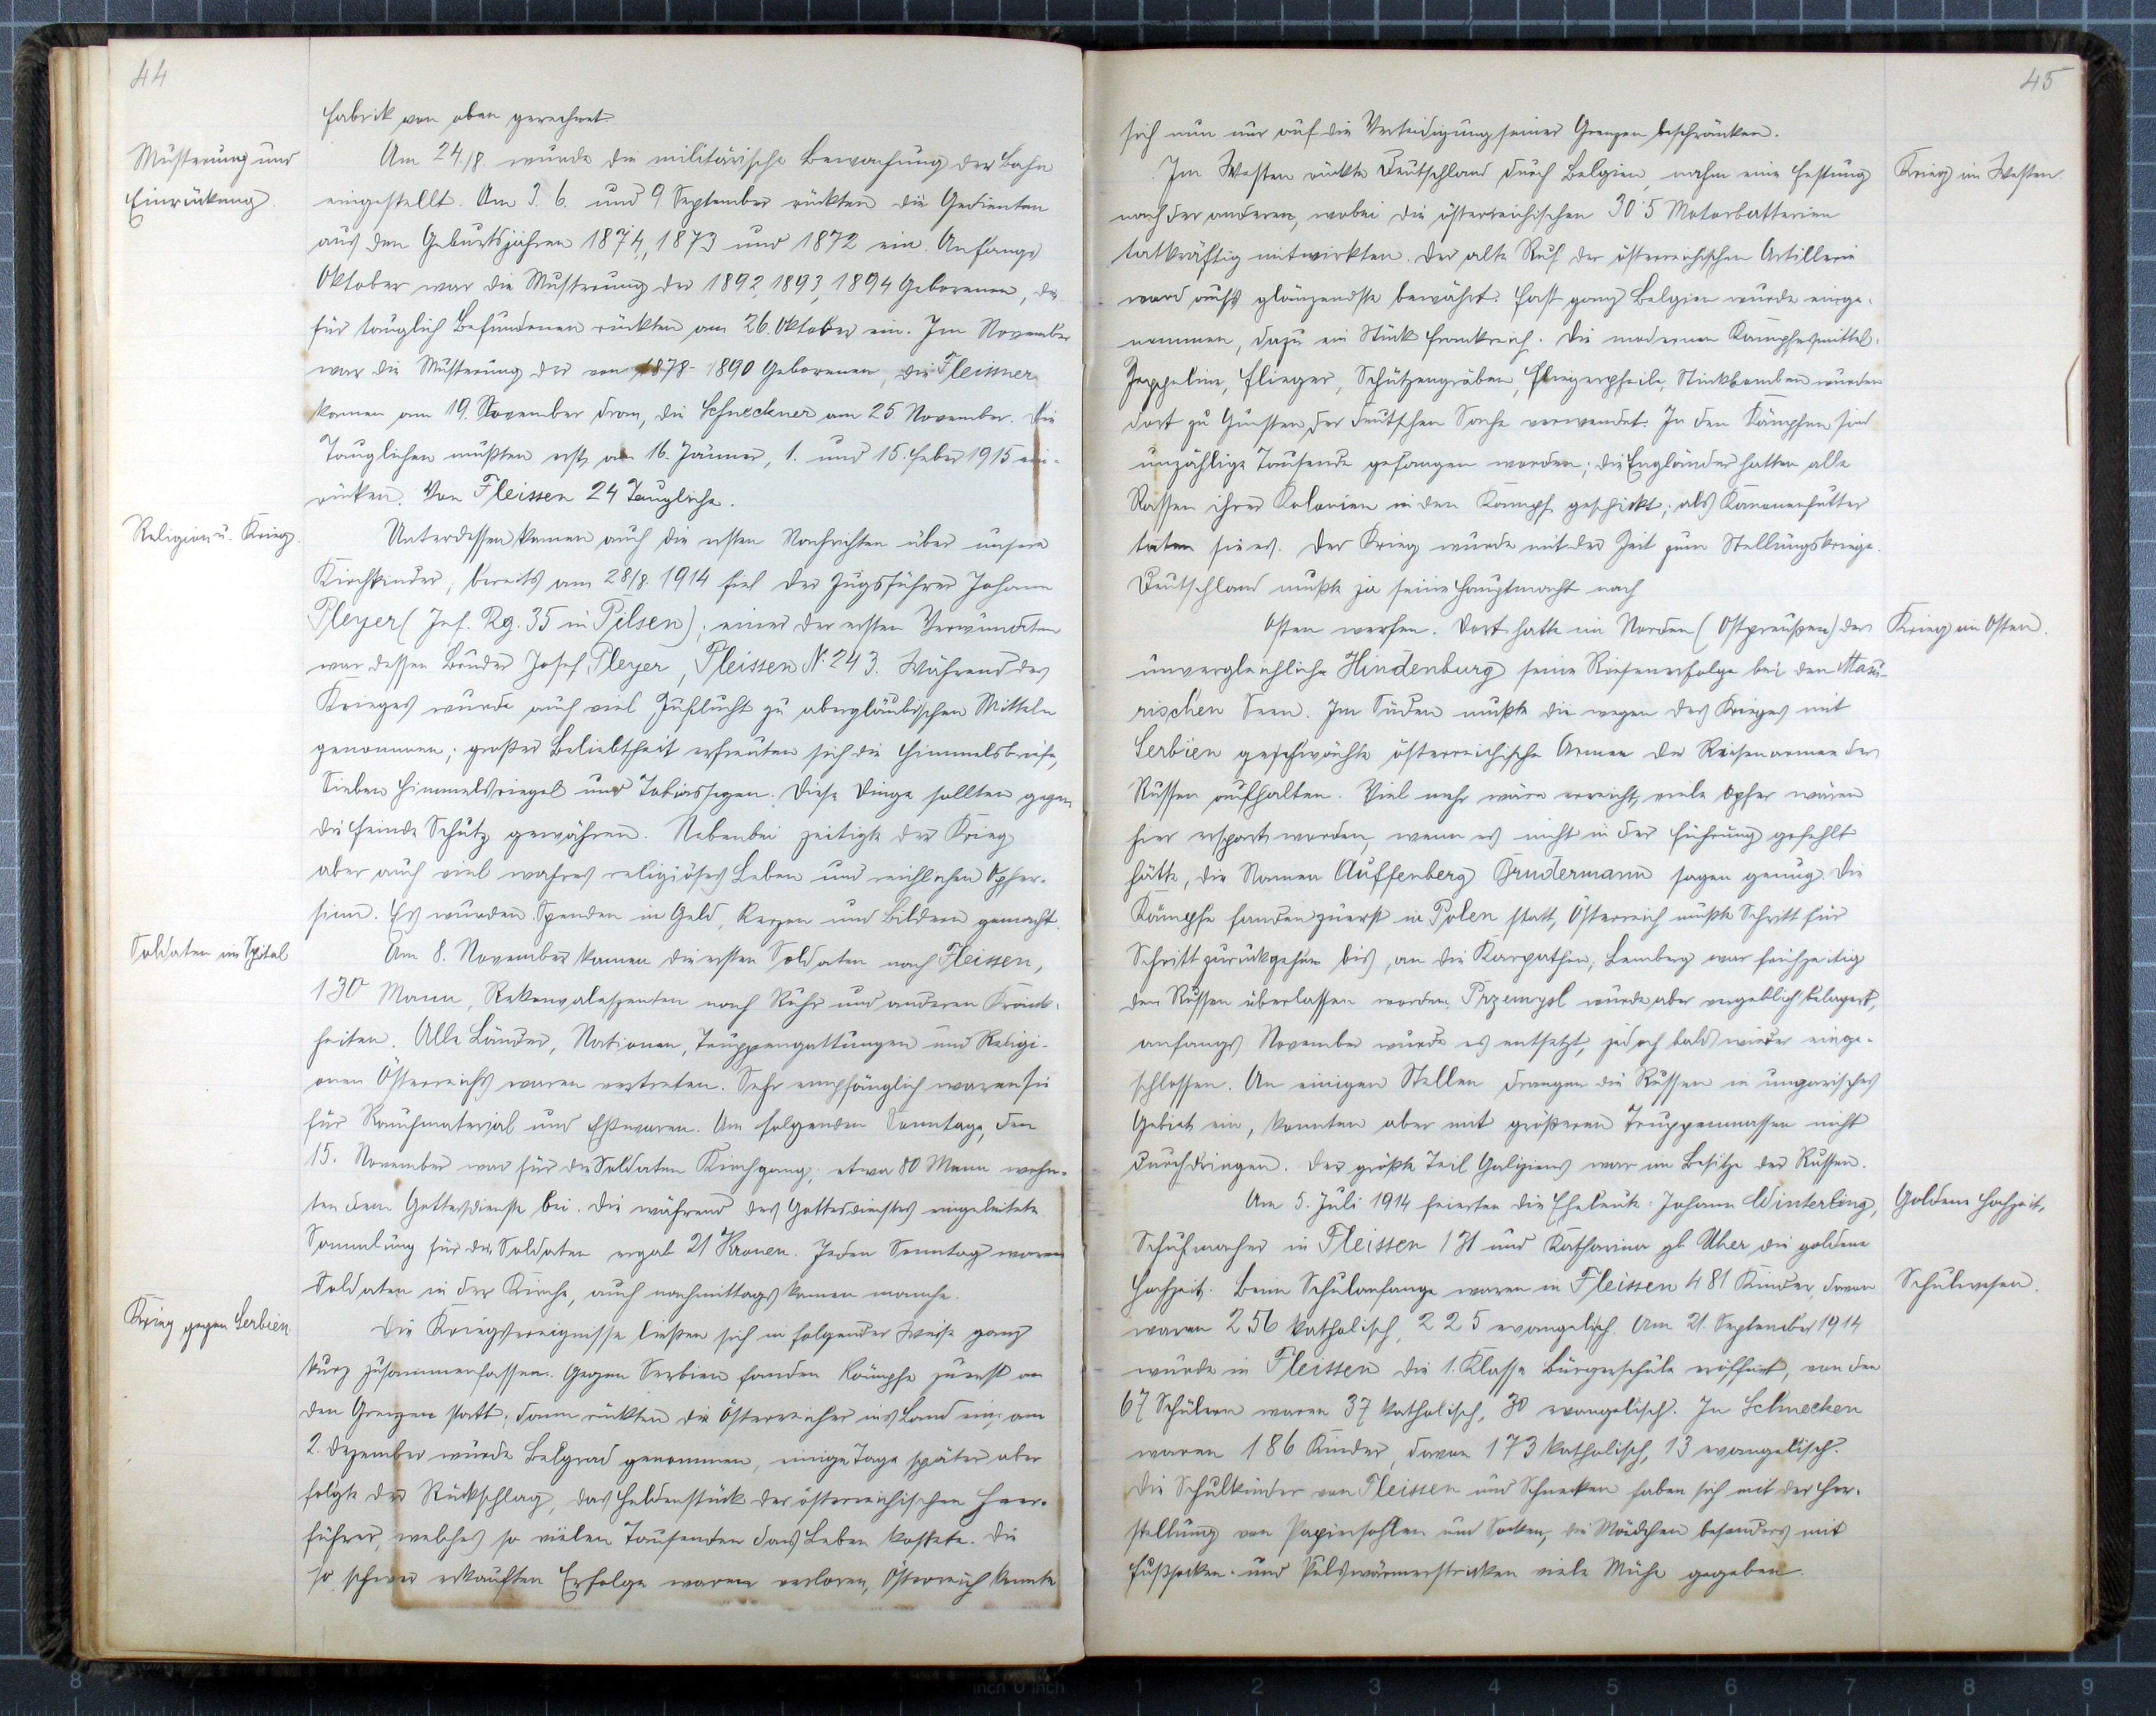 44
Fabrik von oben gerechnet.
Musterung und
Einrückung.
Am 24./8. wurde die militärische Bewachung der Bahn
eingestellt. Am 3. 6. und 9. September rückten die Gedienten
aus den Geburtsjahren 1874, 1873 und 1872 ein. Anfangs
Oktober war die Musterung der 1892, 1893, 1894 Geborenen, die
für tauglich Befundenen rückten am 26. Oktober ein. Im November
war die Musterung der von 1878-1890 Geborenen, die Fleissner
kamen am 19. November dran, die Schneckner am 25 November. Die
Tauglichen mußten erst am 16. Jänner, 1. und 15. Feber 1915 ein-
rücken. Von Fleissen 24 Taugliche.
Religion u. Krieg.
Unterdessen kamen auch die ersten Nachrichten über unsere
Kirchkinder, bereits am 28/8. 1914 fiel der Zugsführer Johann
Pleyer (Inf. Rg. 35 in Pilsen); einer der ersten Verwundeten
war dessen Bruder Josef Pleyer, Fleissen N. 243. Während des
Krieges wurde auch viel Zuflucht zu abergläubischen Mitteln
genommen; großer Beliebtheit erfreuten sich die Himmelsbriefe,
Sieben Himmelsriegel und Tobiassegen. Diese Dinge sollten gegen
die Feinde Schutz gewähren. Nebenbei zeitigte der Krieg
aber auch viel wahres religiöses Leben und reichlichen Opfer-
sinn. Es wurden Spenden in Geld, Kerzen und Bildern gemacht.
Soldaten im Spital
Am 8. November kamen die ersten Soldaten nach Fleissen,
130 Mann, Rekonvaleszenten nach Ruhr und anderen Krank-
heiten. Alle Länder, Nationen, Truppengattungen und Religi-
onen Österreichs waren vertreten. Sehr empfänglich waren sie
für Rauchmaterial und Eßwaren. Am folgenden Sonntage, den
15. November war für die Soldaten Kirchgang; etwa 80 Mann wohn-
ten dem Gottesdienste bei. Die während des Gottesdienstes eingeleitete
Sammlung für die Soldaten ergab 21 Kronen. Jeden Sonntag waren
Soldaten in der Kirche, auch nachmittags kamen manche.
Krieg gegen Serbien
Die Kriegsereignisse ließen sich in folgender Weise ganz
kurz zusammenfassen. Gegen Serbien fanden Kämpfe zuerst an
den Grenzen statt; dann rückten die Österreicher ins Land ein; am
2. Dezember wurde Belgrad genommen, einige Tage später aber
folgte der Rückschlag, das Heldenstück der österreichischen Heer-
führer, welches so vielen Tausenden das Leben kostete. Die
so schwer erkauften Erfolge waren verloren, Österreich konnte
45
sich nun nur auf die Verteidigung seiner Grenzen beschränken.
Krieg im Westen.
Im Westen rückte Deutschland durch Belgien, nahm eine Festung
nach der anderen, wobei die österreichischen 30·5 Motorbatterien
tatkräftig mitwirkten. Der alte Ruf der österreichischen Artillerie
ward aufs glänzendste bewährt. Fast ganz Belgien wurde einge-
nommen, dazu ein Stück Frankreich. Die modernen Kampfesmittel:
Zeppeline, Flieger, Schützengräben, Fliegerpfeile, Stinkbomben wurden
dort zu Gunsten der deutschen Sache verwendet. In den Kämpfen sind
unzählige Tausende gefangen worden; die Engländer hatten alle
Rassen ihrer Kolonien in den Kampf geschickt; als Kanonenfutter
taten sie es. Der Krieg wurde mit der Zeit zum Stellungskriege.
Deutschland mußte ja seine Hauptmacht nach
Krieg im Osten.
Osten werfen. Dort hatte im Norden (Ostpreußen) der
unvergleichliche Hindenburg seine Riesenerfolge bei den Masu-
rischen Seen. Im Süden mußte die wegen des Krieges mit
Serbien geschwächte österreichische Armee die Riesenarmee der
Russen aufhalten. Viel mehr wäre erreicht, viele Opfer wären
hier erspart worden, wenn es nicht in der Führung gefehlt
hätte, die Namen Auffenberg Brudermann sagen genug. Die
Kämpfe fanden zuerst in Polen statt, Österreich mußte Schritt für
Schritt zurückgehen bis an die Karpathen; Lemberg war frühzeitig
den Russen überlassen worden. Przemysl wurde aber vergeblich belagert,
anfangs November wurde es entsetzt, jedoch bald wieder einge-
schlossen. An einigen Stellen drangen die Russen in ungarisches
Gebiet ein, konnten aber mit größeren Truppenmassen nicht
durchdringen. Der größte Teil Galiziens war im Besitze der Russen.
Goldene Hochzeit.
Am 5. Juli 1914 feierten die Eheleute Johann Winterling,
Schuhmacher in Fleissen 131 und Katharina gb. Uher die goldene
Schulwesen.
Hochzeit. Beim Schulanfange waren in Fleissen 481 Kinder, davon
waren 256 katholisch, 225 evangelisch. Am 21. September 1914
wurde in Fleissen die 1. Klasse Bürgerschule eröffnet, von den
67 Schülern waren 37 katholisch, 30 evangelisch. In Schnecken
waren 186 Kinder, davon 173 katholisch, 13 evangelisch.
Die Schulkinder von Fleissen und Schnecken haben sich mit der Her-
stellung von Papiersohlen und Socken, die Mädchen besonders mit
Fußsocken- und Pulswärmerstricken viele Mühe gegeben.